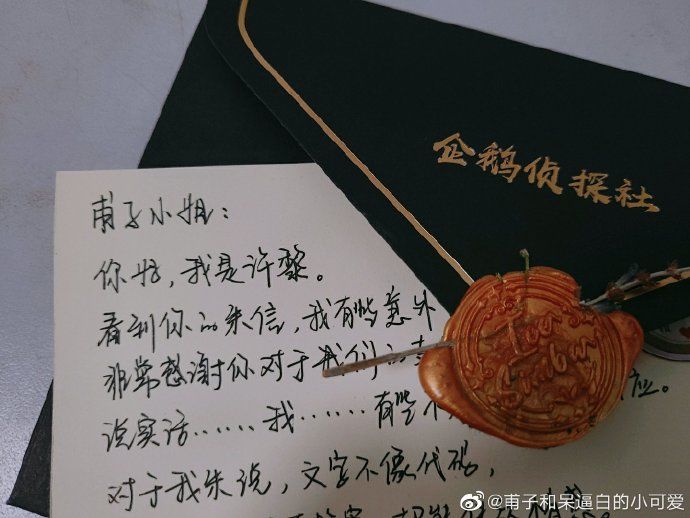 企鹅侦探社
甫子小姐：
你好，我是许黎。
看到你的来信，我有些意外
非常感谢你对于我们的支
说实话……我……有些不 应。
对于我来说，文字不像代码，
For
@甫子和呆逼白的小可爱